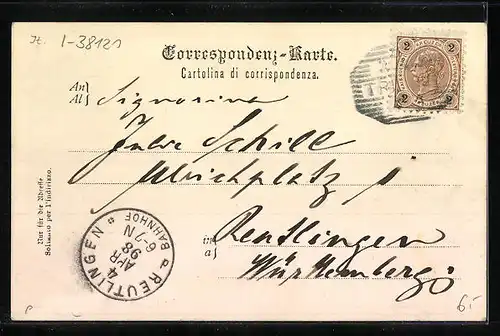 It. I-38121
Correspondenz-Karte.
Cartolina di corrispondenza.
An
Al
Signorina
Schill
Ulrichplatz 1
in
a
Reutlingen
Württemberg
Nur für die Adresse
Soltanto per l'indirizzo.
REUTLINGEN
4
APR
98
6-7 N
BAHNHOF
2 KREUZER 2
2 2
TR
6.-